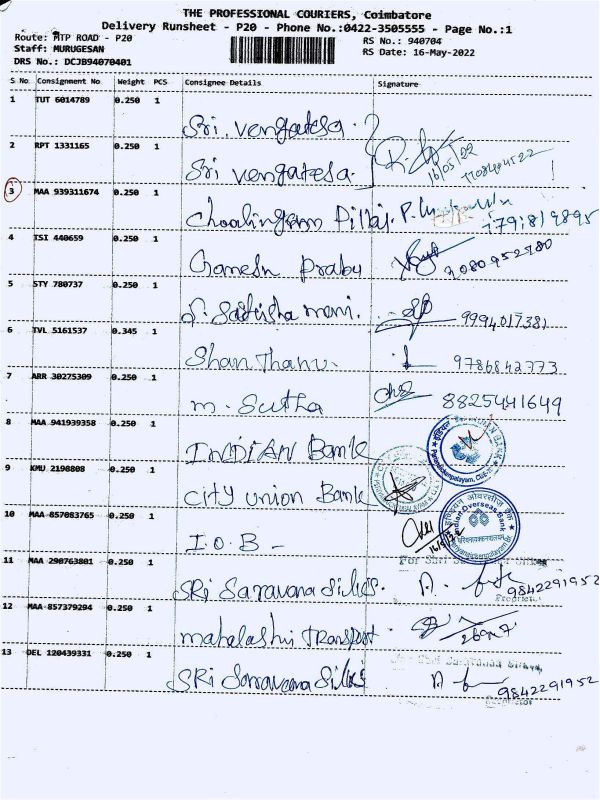 THE PROFESSIONAL COURIERS, Coimbatore
Delivery Runsheet - P20 - Phone No.:0422-3505555 - Page No.:1
Route: MTP ROAD - P20
RS No.: 940704
Staff: MURUGESAN
RS Date: 16-May-2022
DRS No.: DCJB94070401
S No Consignment No Weight PCS Consignee Details Signature
1 TUT 6014789 0.250 1
Sri. vengatesa.
2 RPT 1331165 0.250 1
Sri vengatesa.
16/05/22
3 MAA 939311674 0.250 1
Choalingam Pillai.
7791819895
4 TSI 440659 0.250 1
Ganesh Prabu
9080952780
5 STY 780737 0.250 1
S. Sathisha mani.
9994017381
6 TVL 5161537 0.345 1
Shan Thanu.
9786842773
7 ARR 30275309 0.250 1
m. Sutha
8825441649
8 MAA 941939358 0.250 1
INDIAN Bank
9 KMU 2198808 0.250 1
City union Bank
10 MAA 857083765 0.250 1
I.O.B -
Indian Overseas Bank
11 MAA 290763801 0.250 1
SRi Saravana Silks.
9842291952
12 MAA 857379294 0.250 1
mahalashri Transport.
13 DEL 120439331 0.250 1
SRi Saravana Silks
9842291952